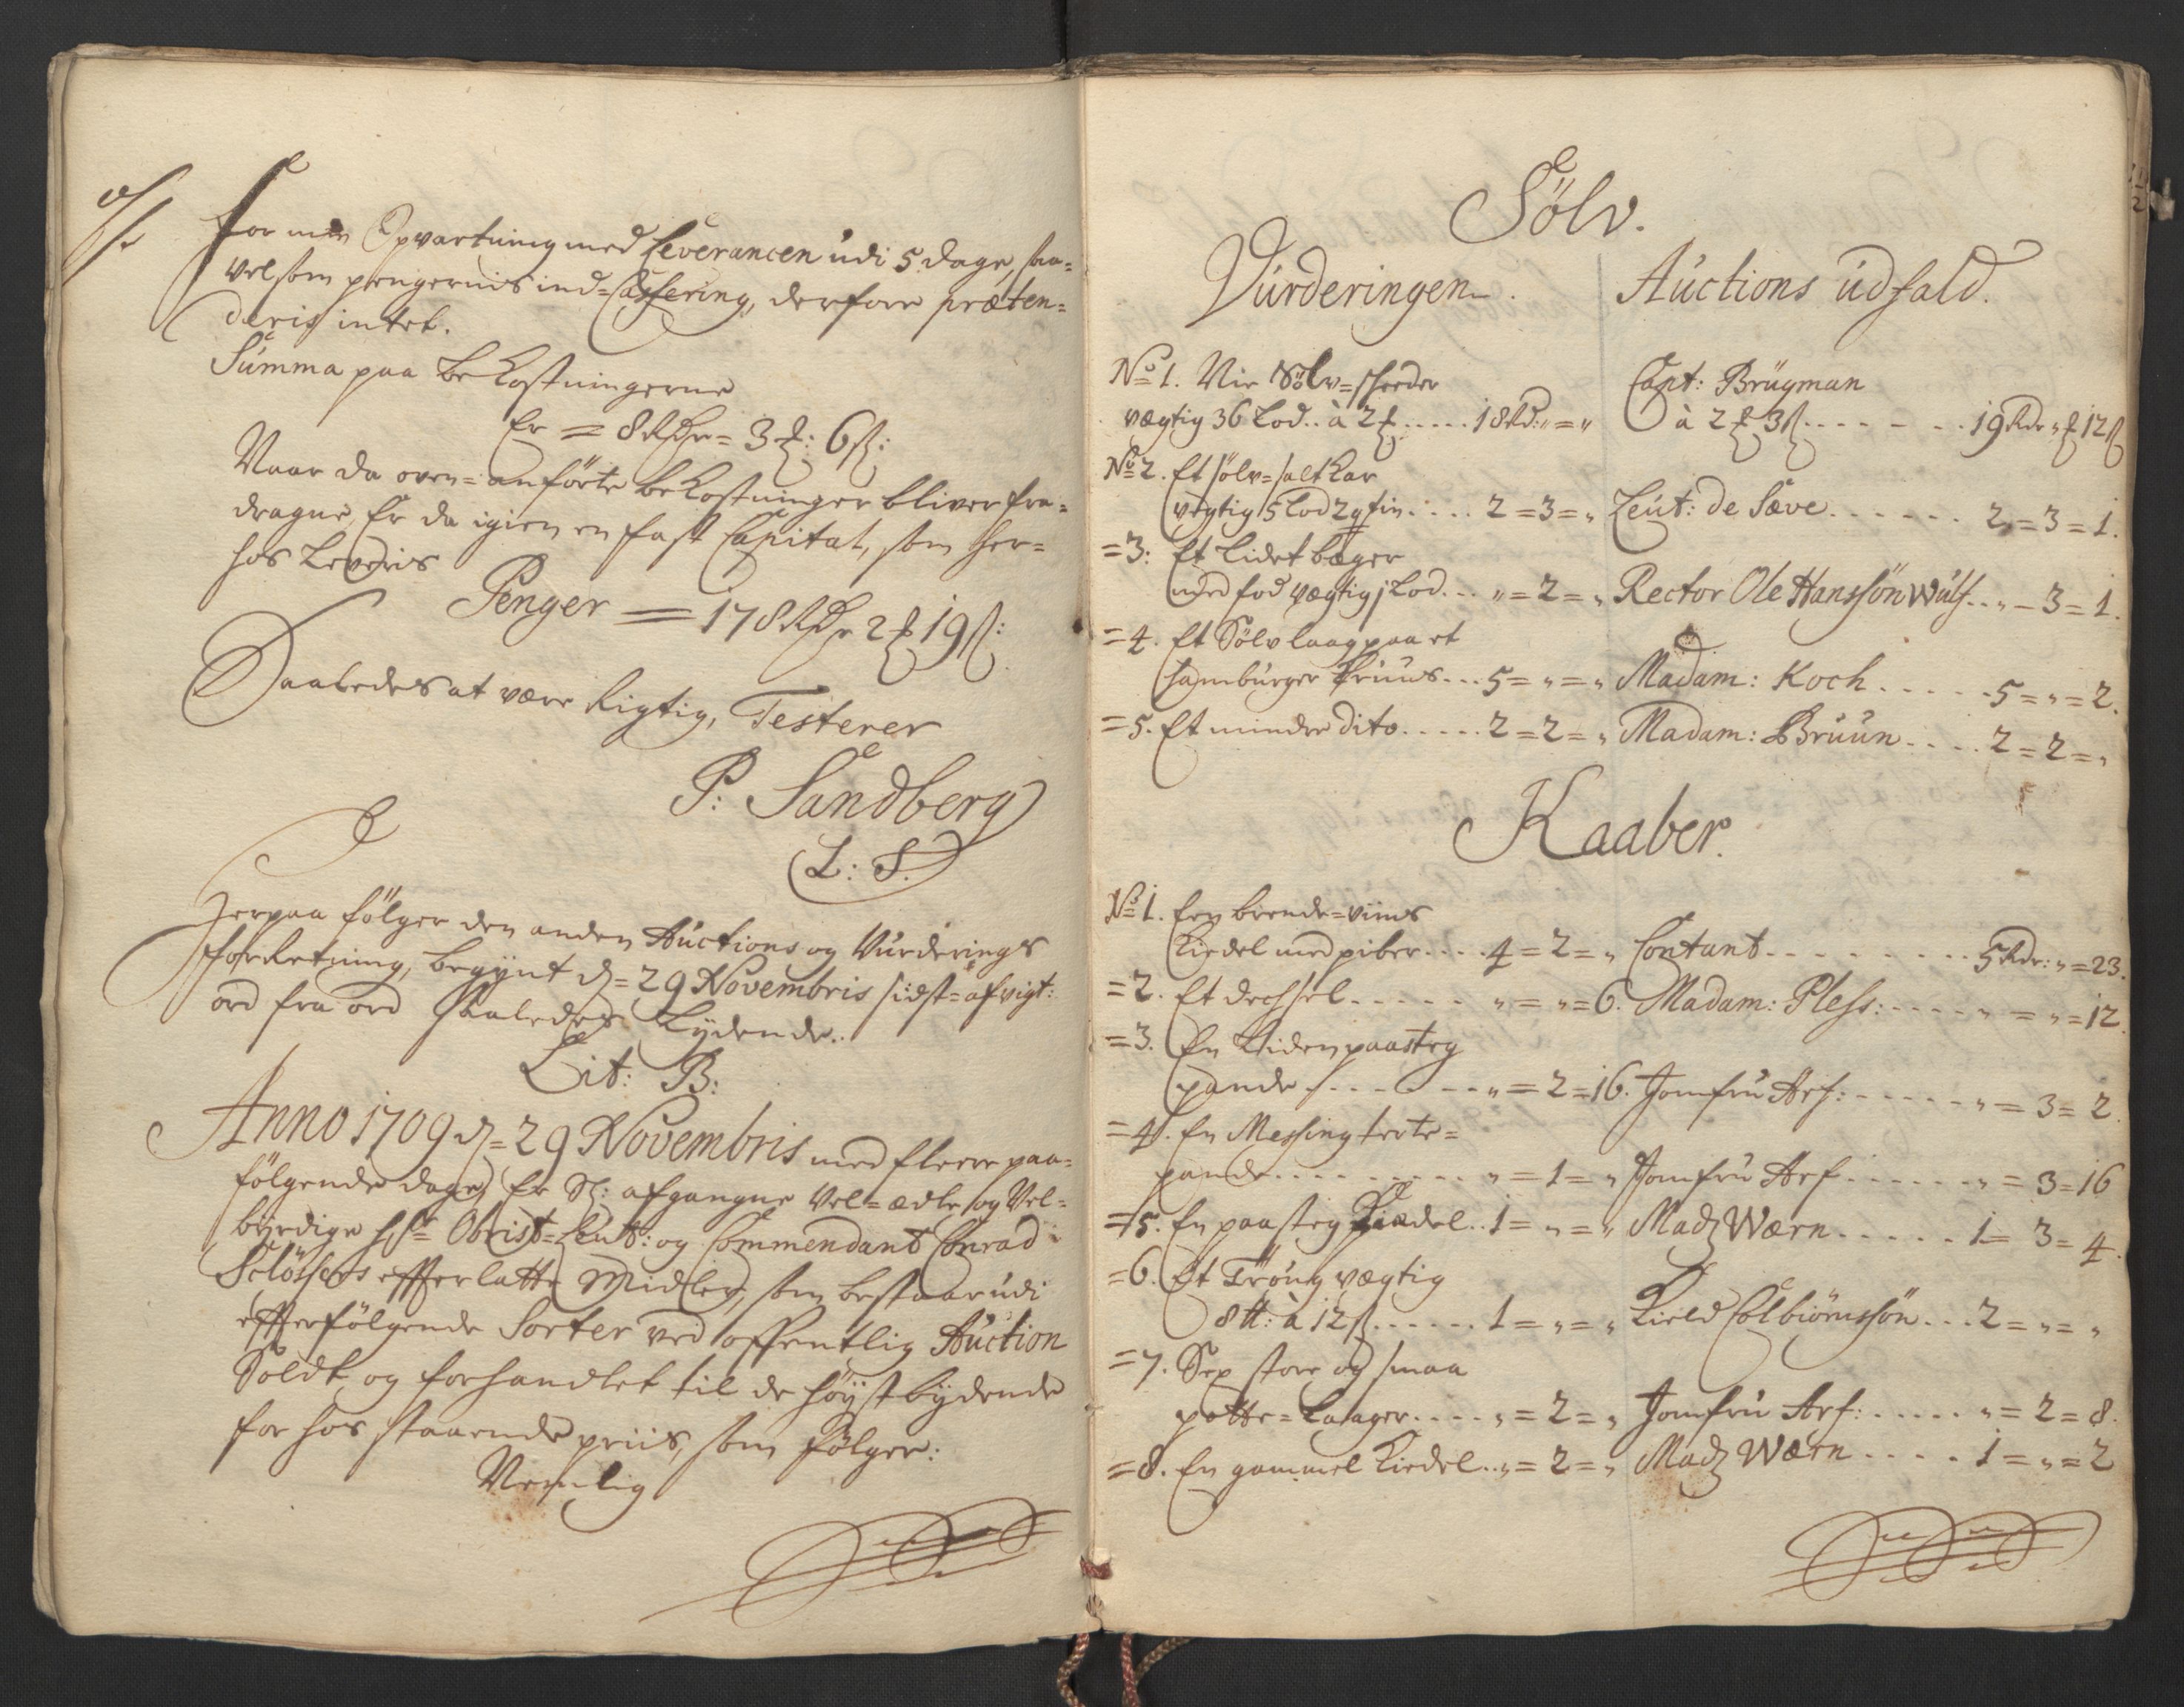 For min Opvartning med Leverancen udi 5 dage, saa=
vel som pengernis ind=Cassering, derfore præten=
deris intet.
Summa paa bekostningerne
Er = 8 Rdr = 3 ʒ: 6 ß:
Naar da oven=anførte bekostninger bliver fra=
dragne, Er da igien en fast Capital, som her=
hos Leveris
Penger = 178 Rdr 2 ʒ 19 ß:
Saaledes at være Rigtig, Testerer
P: Sandberg
(L: S.)
Herpaa følger den anden Auctions og Vurderings
forRetning, begynt d= 29 Novembris sidst=afvigt:
ord fra ord saaledes Lydende.
Lit: B:
Anno 1709 d= 29 Novembris med fleere paa=
følgende dage, Er Sl: afgangne Vel=ædle og Vel=
byrdige Hr Obrist=Leut: og Commendant Conrad
Sclössers efterlatte Midler, som bestaar udi
efterfølgende Sorter ved offentlig Auction
Soldt og forhandlet til de høyst bydende
for hos staaende priis, som følger:
Nemlig
Sølv.
Vurderingen. Auctions udfald.
No 1. Nie Sølv=skeeder Capt: Brügman
vægtig 36 Lod.. à 2 ʒ..... 18 Rd: „ = „ à 2 ʒ 3 ß....... 19 Rdr „ ʒ 12 ß
No 2. Et sølv=saltKar
vegtig 5 Lod 2 qtin.... 2 = 3 = „ Leut: de Sæve...... 2 = 3 = 1.
= 3: Et Lidet bæger
med fod vægtig j Lod... „ = 2 = „ Rector Ole Hanssøn Wulf.. „ – 3 = 1.
= 4. Et Sølv laag paa et
hamburger Kruus... 5 = „ = „ Madam: Koch..... 5 = „ = 2.
= 5. Et mindre dito..... 2 = 2 = „ Madam: Bruun.... 2 = 2 = „
Kaaber.
No 1. Een brende=viins
Kiedel med piber.... 4 = 2 = „ Contant......... 5 Rdr: „ = 23.
= 2. Et dechsel..... „ = „ = 6. Madam: Pless:..... „ = „ = 12.
= 3. En Liden paasteg
pande....... „ = 2 = 16. Jomfru Arf:..... „ = 3 = 2.
= 4. En Messing terte=
pande......... „ = 1 = „ Jomfru Arf...... „ = 3 = 16
= 5. En paasteg Kiedel.. 1 = „ = „ Madz Wærn..... 1 = 3 = 4.
= 6. Et Trøug vægtig
8 tt: à 12 ß...... 1 = „ = „ Kield Colbiørnssøn... 2 = „ = „
= 7. Sex store og smaa
potte=Laager.... „ = 2 = „ Jomfru Arf:..... „ = 2 = 8.
= 8. En gammel Kiedel.. „ = 2 = „ Madz Wærn.... 1 = „ = 2